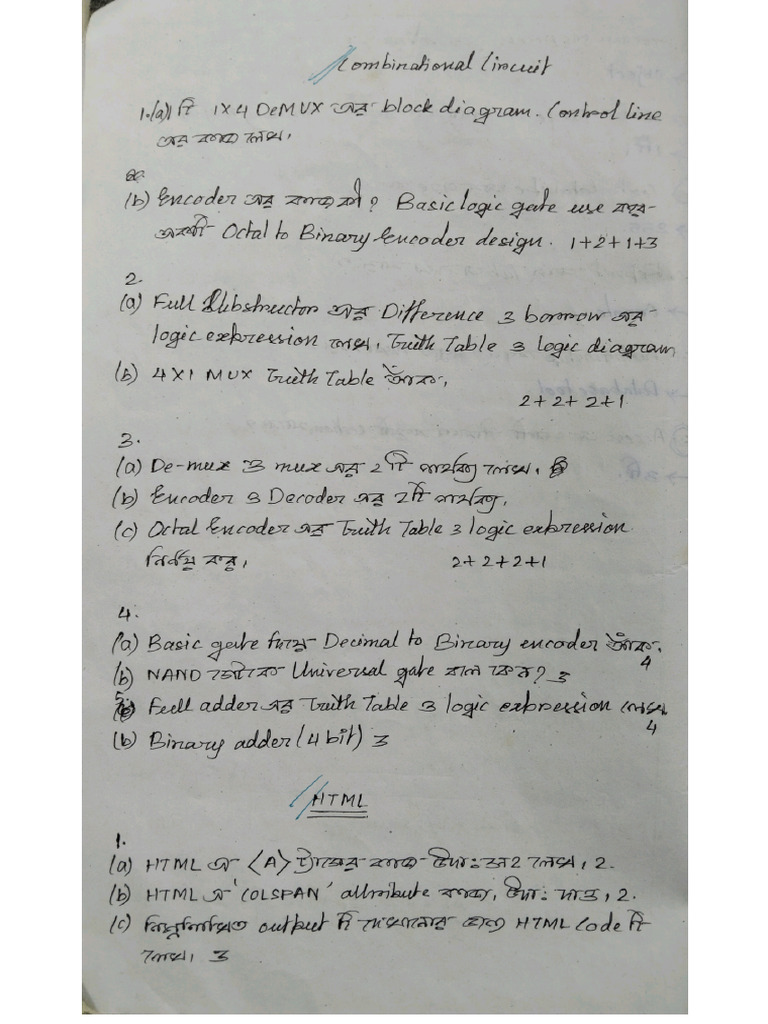 Combinational Circuit
1.(a) 1টি 1X4 DeMUX এর block diagram. Control line
এর কাজ লেখ।
(b) Encoder এর কাজ কী? Basic logic gate use করে
একটি Octal to Binary Encoder design. 1+2+1+3
2.
(a) Full Substructor এর Difference ও borrow এর
logic expression লেখ, Truth Table ও logic diagram
(b) 4X1 MUX Truth Table আঁক,
2+2+2+1
3.
(a) De-mux ও mux এর 2টি পার্থক্য লেখ।
(b) Encoder ও Decoder এর 2টি পার্থক্য,
(c) Octal Encoder এর Truth Table ও logic expression
নির্ণয় কর।
2+2+2+1
4.
(a) Basic gate দিয়ে Decimal to Binary encoder আঁক,
4
(b) NAND গেটকে Universal gate বলে কেন? 3
5. Full adder এর Truth Table ও logic expression লেখ,
4
(b) Binary adder (4 bit) 3
HTML
1.
(a) HTML এ <A> ট্যাগের কাজ উদাঃসহ লেখ, 2.
(b) HTML এ 'COLSPAN' attribute কাজ, উদাঃ দাও, 2.
(c) নিম্নলিখিত output টি দেখানোর জন্য HTML Code টি
লেখ। 3